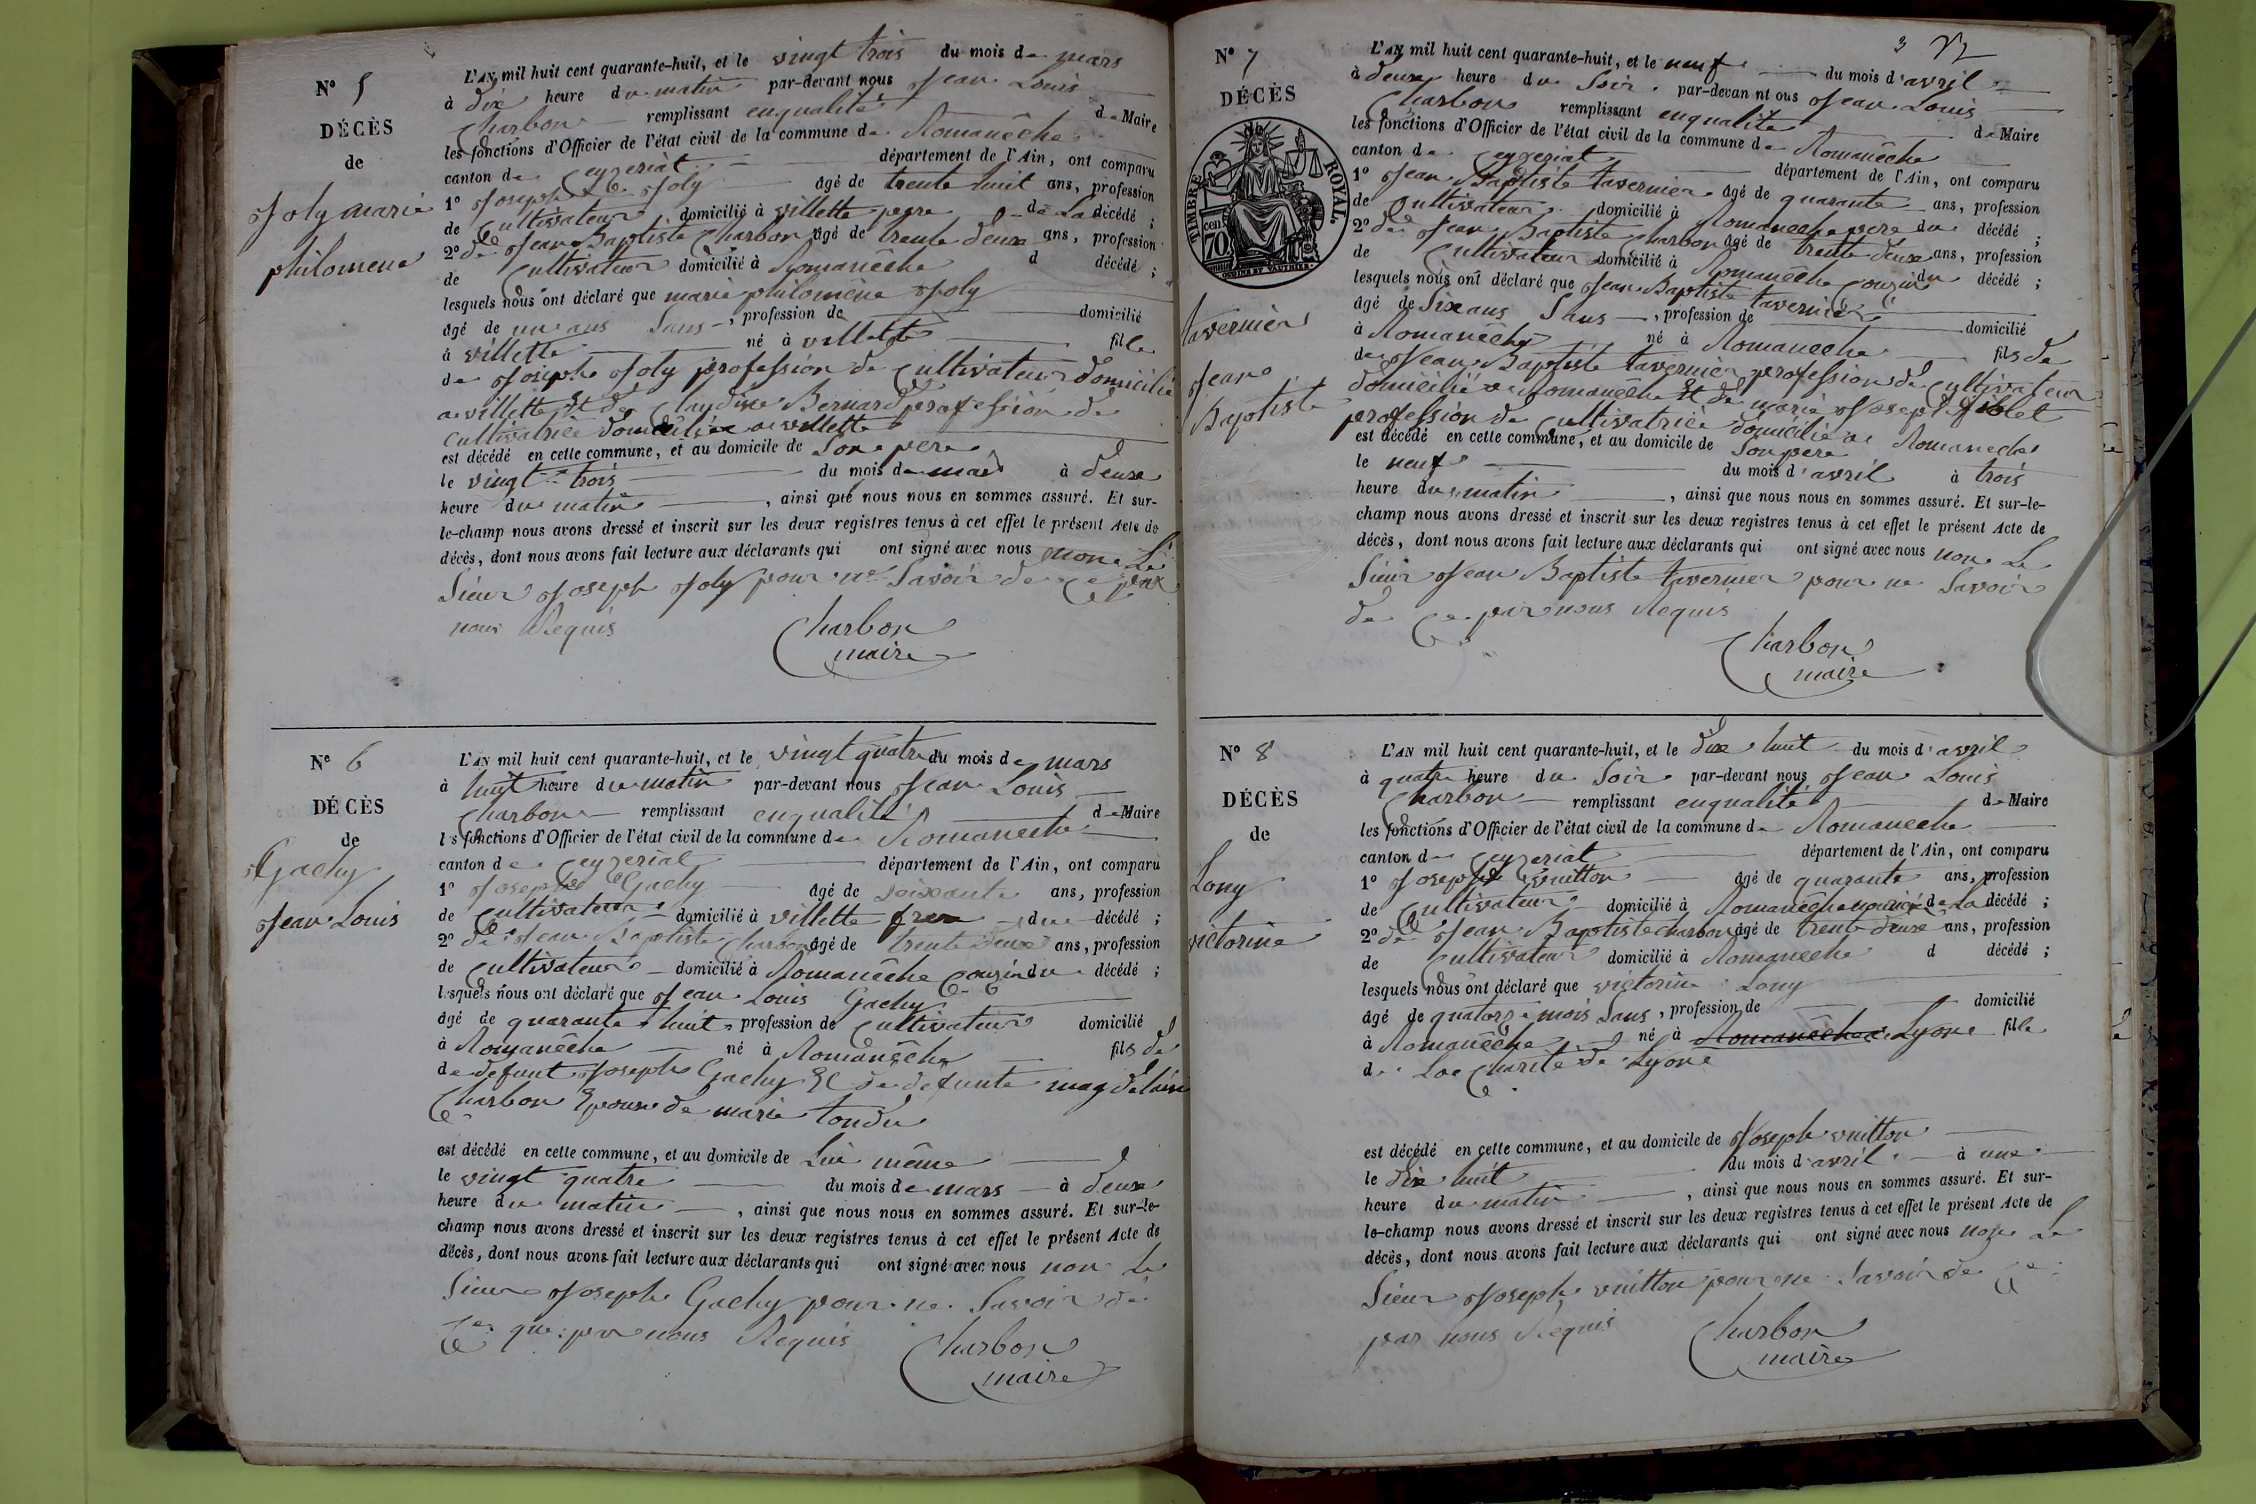 N° 5
DÉCÈS
de
Joly marie
philomene
L'AN mil huit cent quarante-huit, et le vingt trois du mois de mars
à dix heure du matin par-devant nous Jean Louis
Charbon remplissant enqualité de Maire
les fonctions d'Officier de l'état civil de la commune de Romanêche
canton de Ceyzeriat département de l'Ain, ont comparu
1° Joseph Joly âgé de trente huit ans, profession
de Cultivateur domicilié à villette pere de La décédé ;
2° de Jean Baptiste Charbon âgé de trente deux ans, profession
de Cultivateur domicilié à Romanêche d décédé ;
lesquels nous ont déclaré que marie philomène Joly
âgé de un ans Sans , profession de domicilié
à villette né à villette fille
de Joseph Joly profession de Cultivateur domicilié
a villette Et de Claudine Bernard profession de
Cultivatrice domiciliée a villette
est décédé en cette commune, et au domicile de Son pere
le vingt trois du mois de mars à deux
heure du matin , ainsi que nous nous en sommes assuré. Et sur-
le-champ nous avons dressé et inscrit sur les deux registres tenus à cet effet le présent Acte de
décès, dont nous avons fait lecture aux déclarants qui ont signé avec nous non Le
Sieur Joseph Joly pour ne Savoir de Ce par
nous Requis
Charbon
maire
N° 6
DÉCÈS
de
Gachy
Jean Louis
L'AN mil huit cent quarante-huit, et le vingt quatre du mois de mars
à huit heure du matin par-devant nous Jean Louis
Charbon remplissant enqualité de Maire
les fonctions d'Officier de l'état civil de la commune de Romaneche
canton de Ceyzeriat département de l'Ain, ont comparu
1° Joseph Gachy âgé de soixante ans, profession
de Cultivateur domicilié à villette frere du décédé ;
2° de Jean Baptiste Charbon âgé de trente deux ans, profession
de Cultivateur domicilié à Romanêche Cousin du décédé ;
lesquels nous ont déclaré que Jean Louis Gachy
âgé de quarante huit profession de Cultivateur domicilié
à Romanêche né à Romanêche fils de
de defunt Joseph Gachy Et de defunte magdelaine
Charbon Epoux de marie tondu
est décédé en cette commune, et au domicile de Lui même
le vingt quatre du mois de mars à deux
heure du matin , ainsi que nous nous en sommes assuré. Et sur-le-
champ nous avons dressé et inscrit sur les deux registres tenus à cet effet le présent Acte de
décès, dont nous avons fait lecture aux déclarants qui ont signé avec nous non Le
Sieur Joseph Gachy pour ne Savoir de
Ce que par nous Requis
Charbon
maire
3
N° 7
DÉCÈS
de
TIMBRE ROYAL.
70 cen
tavernier
Jean
Baptiste
L'AN mil huit cent quarante-huit, et le neuf du mois d'avril
à deux heure du Soir par-devan nt ous Jean Louis
Charbon remplissant enqualité de Maire
les fonctions d'Officier de l'état civil de la commune de Romanêche
canton de Ceyzeriat département de l'Ain, ont comparu
1° Jean Baptiste tavernier âgé de quarante ans, profession
de Cultivateur domicilié à Romaneche pere du décédé ;
2° de Jean Baptiste Charbon âgé de trente deux ans, profession
de Cultivateur domicilié à Romaneche Cousin du décédé ;
lesquels nous ont déclaré que Jean Baptiste tavernier
âgé de Six ans Sans , profession de domicilié
à Romanêche né à Romaneche fils de
de Jean Baptiste tavernier profession de Cultivateur
domicilié a Romanêche Et de marie Joseph
profession de Cultivatrice domicilié a Romaneche
est décédé en cette commune, et au domicile de Son pere
le neuf du mois d'avril à trois
heure du matin , ainsi que nous nous en sommes assuré. Et sur-le-
champ nous avons dressé et inscrit sur les deux registres tenus à cet effet le présent Acte de
décès, dont nous avons fait lecture aux déclarants qui ont signé avec nous non Le
Sieur Jean Baptiste tavernier pour ne Savoir
de Ce par nous Requis
Charbon
maire
N° 8
DÉCÈS
de
Lony
victorine
L'AN mil huit cent quarante-huit, et le dix huit du mois d'avril
à quatre heure du Soir par-devant nous Jean Louis
Charbon remplissant enqualité de Maire
les fonctions d'Officier de l'état civil de la commune de Romaneche
canton de Ceyzeriat département de l'Ain, ont comparu
1° Joseph vuitton âgé de quarante ans, profession
de Cultivateur domicilié à Romanêche de La décédé ;
2° de Jean Baptiste charbon âgé de trente deux ans, profession
de Cultivateur domicilié à Romaneche d décédé ;
lesquels nous ont déclaré que victorine Lony
âgé de quatorze mois Sans , profession de domicilié
à Romanêche né à Romanêche a Lyon fille
de La Charité de Lyon
est décédé en cette commune, et au domicile de Joseph vuitton
le dix huit du mois d'avril à une
heure du matin , ainsi que nous nous en sommes assuré. Et sur-
le-champ nous avons dressé et inscrit sur les deux registres tenus à cet effet le présent Acte de
décès, dont nous avons fait lecture aux déclarants qui ont signé avec nous non Le
Sieur Joseph vuitton pour ne Savoir de Ce
par nous Requis
Charbon
maire